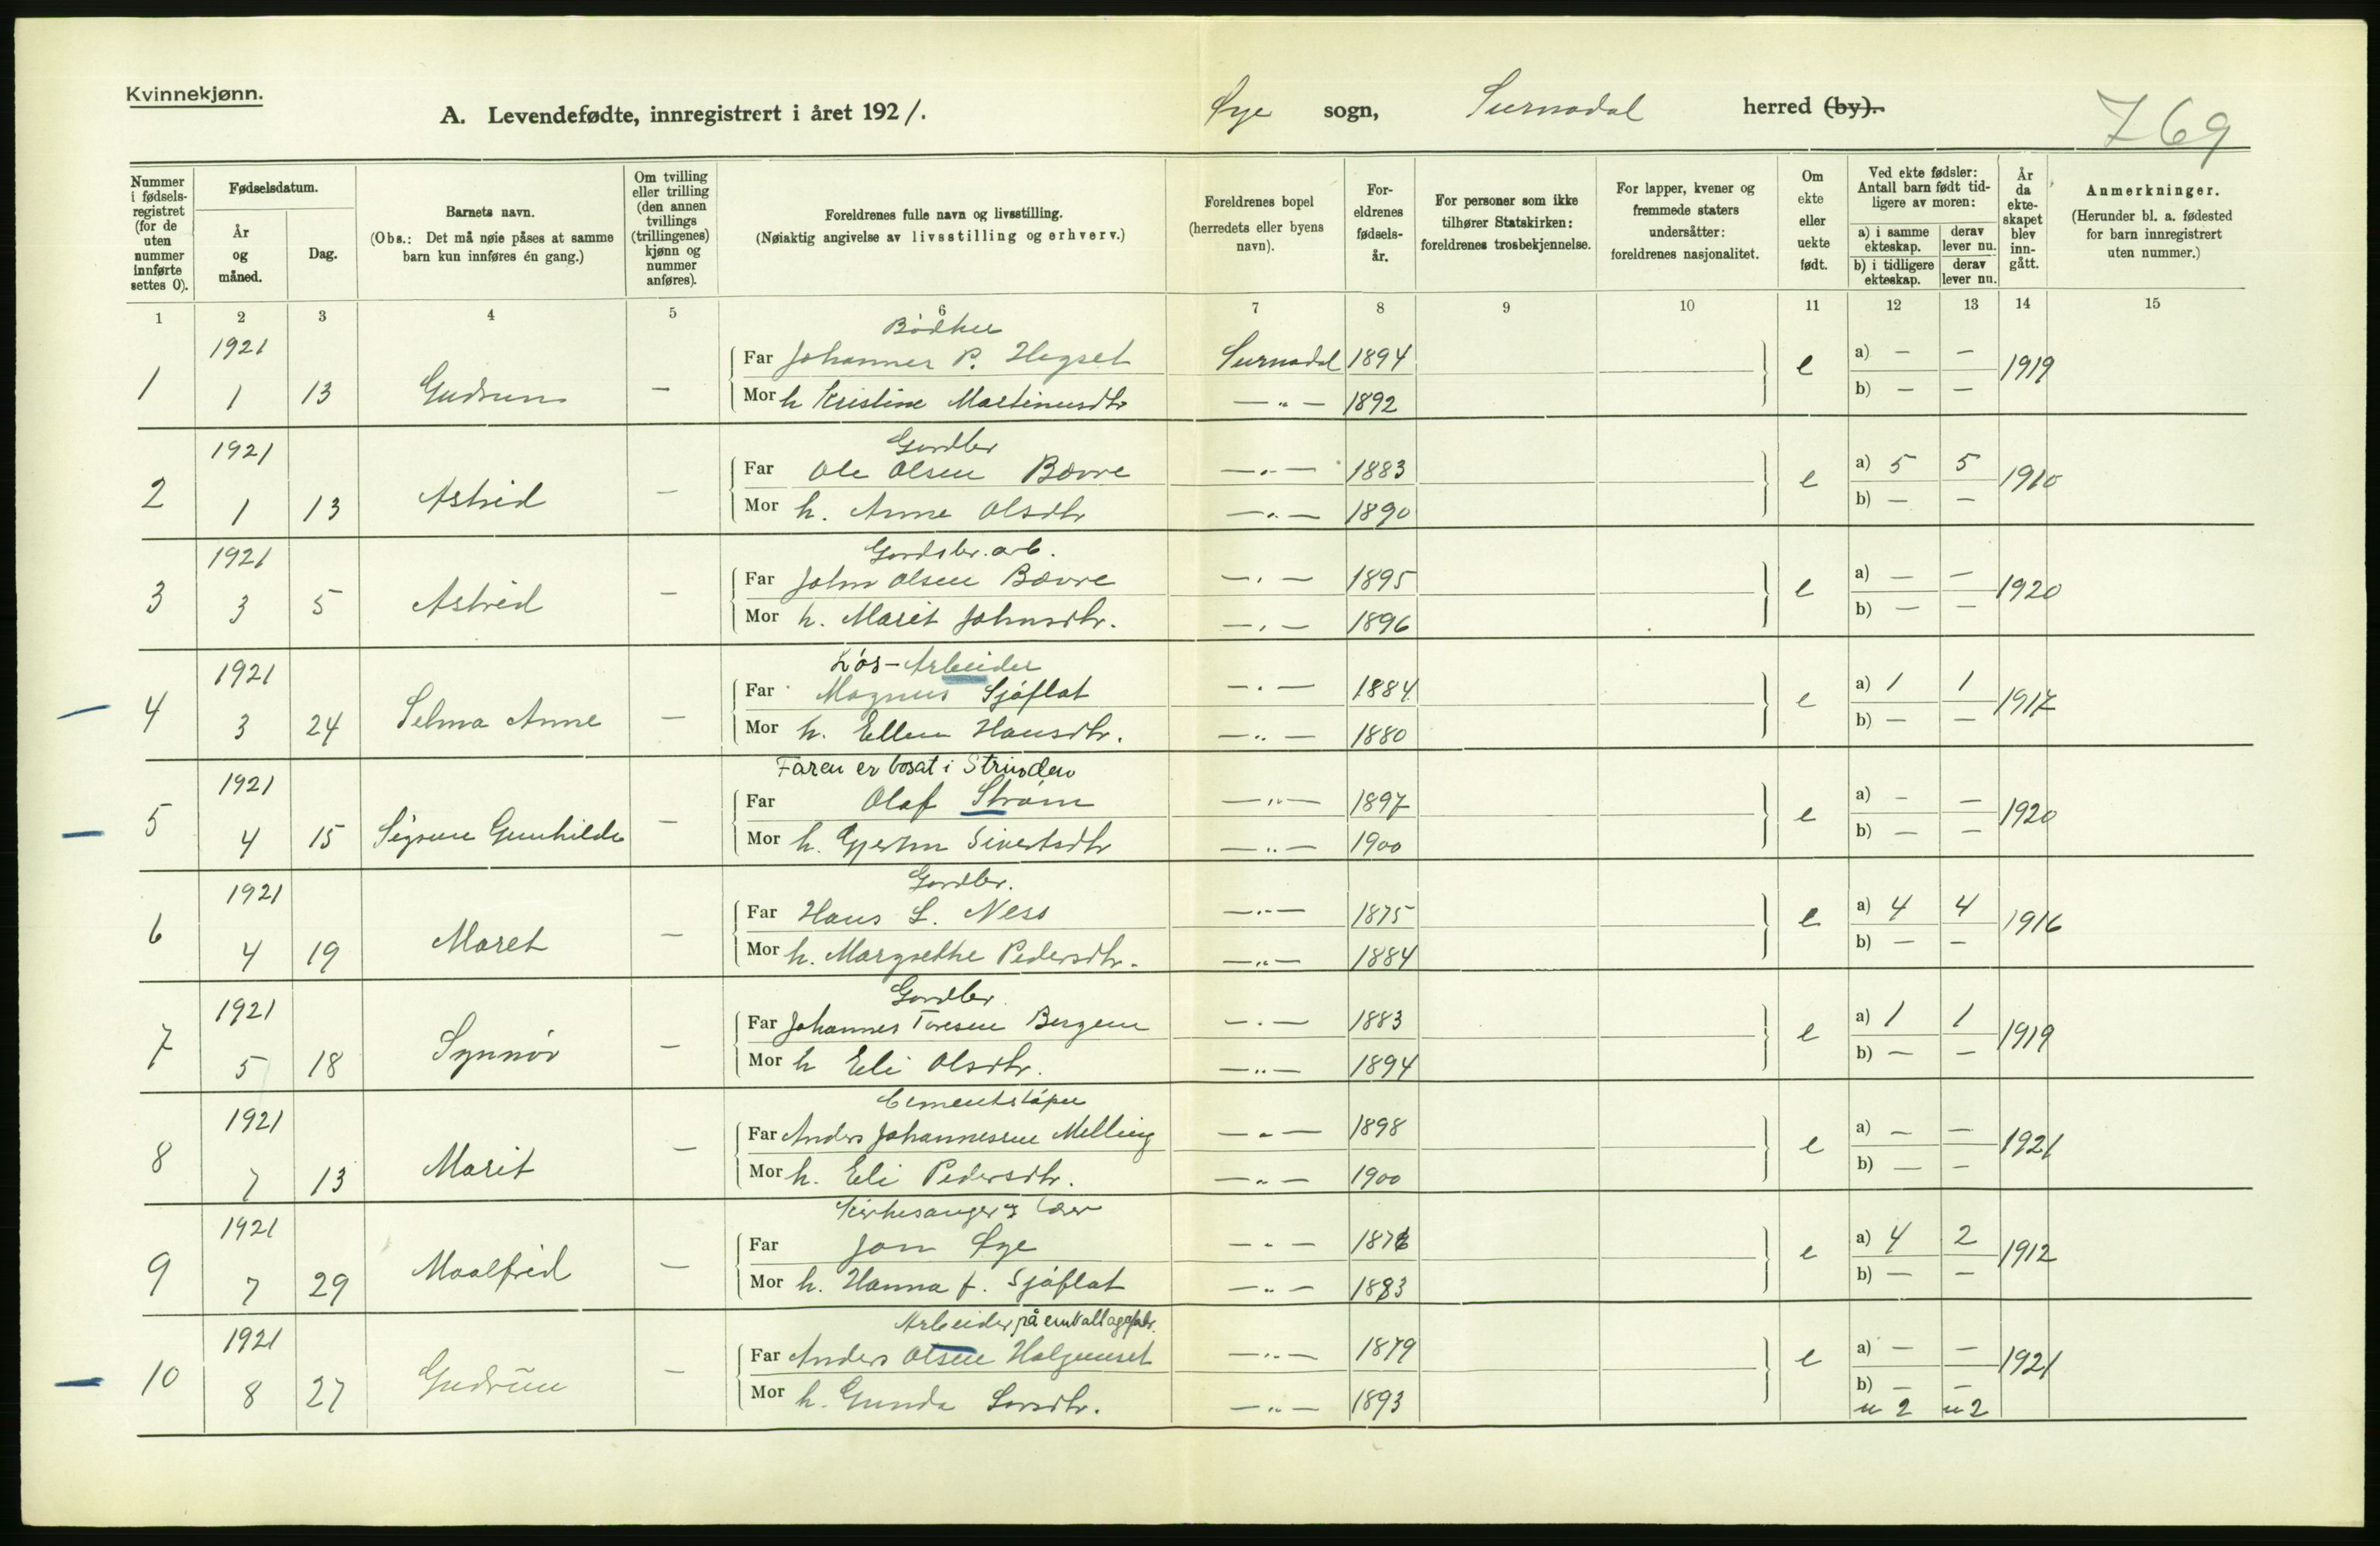 Kvinnekjønn.
A. Levendefødte, innregistrert i året 1921. Øye sogn, Surnadal herred (by). 769
Nummer i fødselsregistret (for de uten nummer innførte settes 0).
Fødselsdatum.
År og måned.
Dag.
Barnets navn.
(Obs.: Det må nøie påses at samme barn kun innføres én gang.)
Om tvilling eller trilling (den annen tvillings (trillingenes) kjønn og nummer anføres).
Foreldrenes fulle navn og livsstilling.
(Nøiaktig angivelse av livsstilling og erhverv.)
Foreldrenes bopel (herredets eller byens navn).
Foreldrenes fødselsår.
For personer som ikke tilhører Statskirken: foreldrenes trosbekjennelse.
For lapper, kvener og fremmede staters undersåtter: foreldrenes nasjonalitet.
Om ekte eller uekte født.
Ved ekte fødsler: Antall barn født tidligere av moren:
a) i samme ekteskap. derav lever nu.
b) i tidligere ekteskap. derav lever nu.
År da ekteskapet blev inngått.
Anmerkninger.
(Herunder bl. a. fødested for barn innregistrert uten nummer.)
1 2 3 4 5 6 7 8 9 10 11 12 13 14 15
Bødker
1 1921 1 13 Gudrun — Far Johannes P. Hegset Surnadal 1894 e a) — — 1919
Mor h Kristine Martinusdtr —"— 1892 b) — —
Gardbr
2 1921 1 13 Astrid — Far Ole Olsen Bævre —"— 1883 e a) 5 5 1910
Mor h. Anne Olsdtr —"— 1890 b) — —
Gardsbr. arb.
3 1921 3 5 Astrid — Far John Olsen Bævre —"— 1895 e a) — — 1920
Mor h. Marit Johnsdtr. —"— 1896 b) — —
Løs-Arbeider
4 1921 3 24 Selma Anne — Far Magnus Sjøflot —"— 1884 e a) 1 1 1917
Mor h. Ellen Hansdtr. —"— 1880 b) — —
Faren er bosat i Strinden
5 1921 4 15 Sigrun Gunhilde — Far Olaf Strøm —"— 1897 e a) — — 1920
Mor h. Sivertsdtr —"— 1900 b) — —
Gardbr.
6 1921 4 19 Maret — Far Hans L. Ness —"— 1875 e a) 4 4 1916
Mor h. Margrethe Pedersdtr. —"— 1884 b) — —
Gardbr.
7 1921 5 18 Synnøv — Far Johannes Toresen Bergem —"— 1883 e a) 1 1 1919
Mor h Eli Olsdtr. —"— 1894 b) — —
Cementstøper
8 1921 7 13 Marit — Far Anders Johannessen Melling —"— 1898 e a) — — 1921
Mor h. Eli Pedersdtr. —"— 1900 b) — —
Kirkesanger og lærer
9 1921 7 29 Maalfrid — Far Jon Øye —"— e a) 4 2 1912
Mor h. Hanna f. Sjøflot —"— 1883 b) — —
Arbeider på emballagefabr.
10 1921 8 27 Gudrun — Far Anders Olsen Holgemset —"— 1879 e a) — — 1921
Mor h. Gunda Larsdtr. —"— 1893 b) — —
u 2 u 2